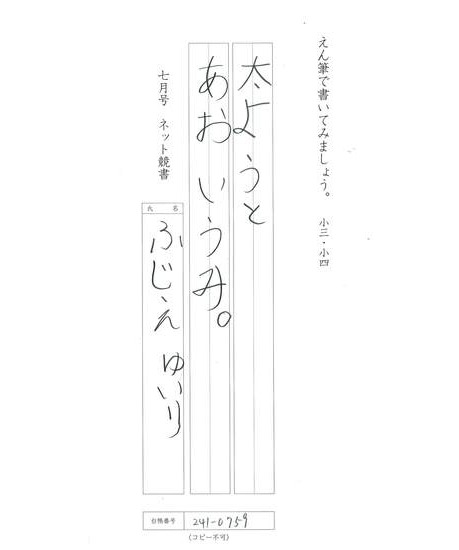 えん筆で書いてみましょう。 小三・小四
太ようと
あおいうみ。
七月号 ネット競書
氏名
ふじえ ゆいり
会格番号 241-0759
(コピー不可)